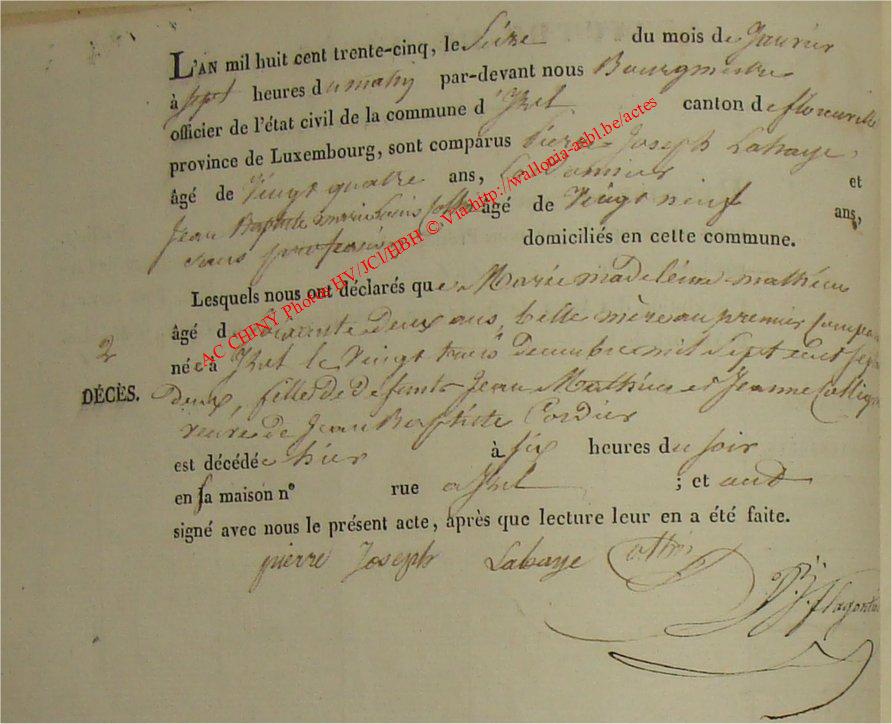 L'AN mil huit cent trente-cinq, le Seize du mois de Janvier
à sept heures du matin par-devant nous Bourgmestre
officier de l'état civil de la commune d'Izel canton de florenville
province de Luxembourg, sont comparus Pierre Joseph Labaye,
âgé de Vingt quatre ans, Cordonnier et
Jean Baptiste marie Louis âgé de Vingt neuf ans,
sans profession domiciliés en cette commune.
Lesquels nous ont déclarés que Marie madeleine mathieu
âgé de soixante deux ans, belle mère au premier compa
née à Izel le Vingt trois Decembre mil sept cent
deux, fille de defunts Jean Mathieu et Jeanne
veuve de Jean Baptiste Cordier
2
DÉCÈS.
est décédée hier à six heures du soir
en sa maison nº rue a Izel ; et ont
signé avec nous le présent acte, après que lecture leur en a été faite.
pierre Joseph Labaye
AC CHINY Photos HV/JCl/HBH © Via http://wallonia-asbl.be/actes